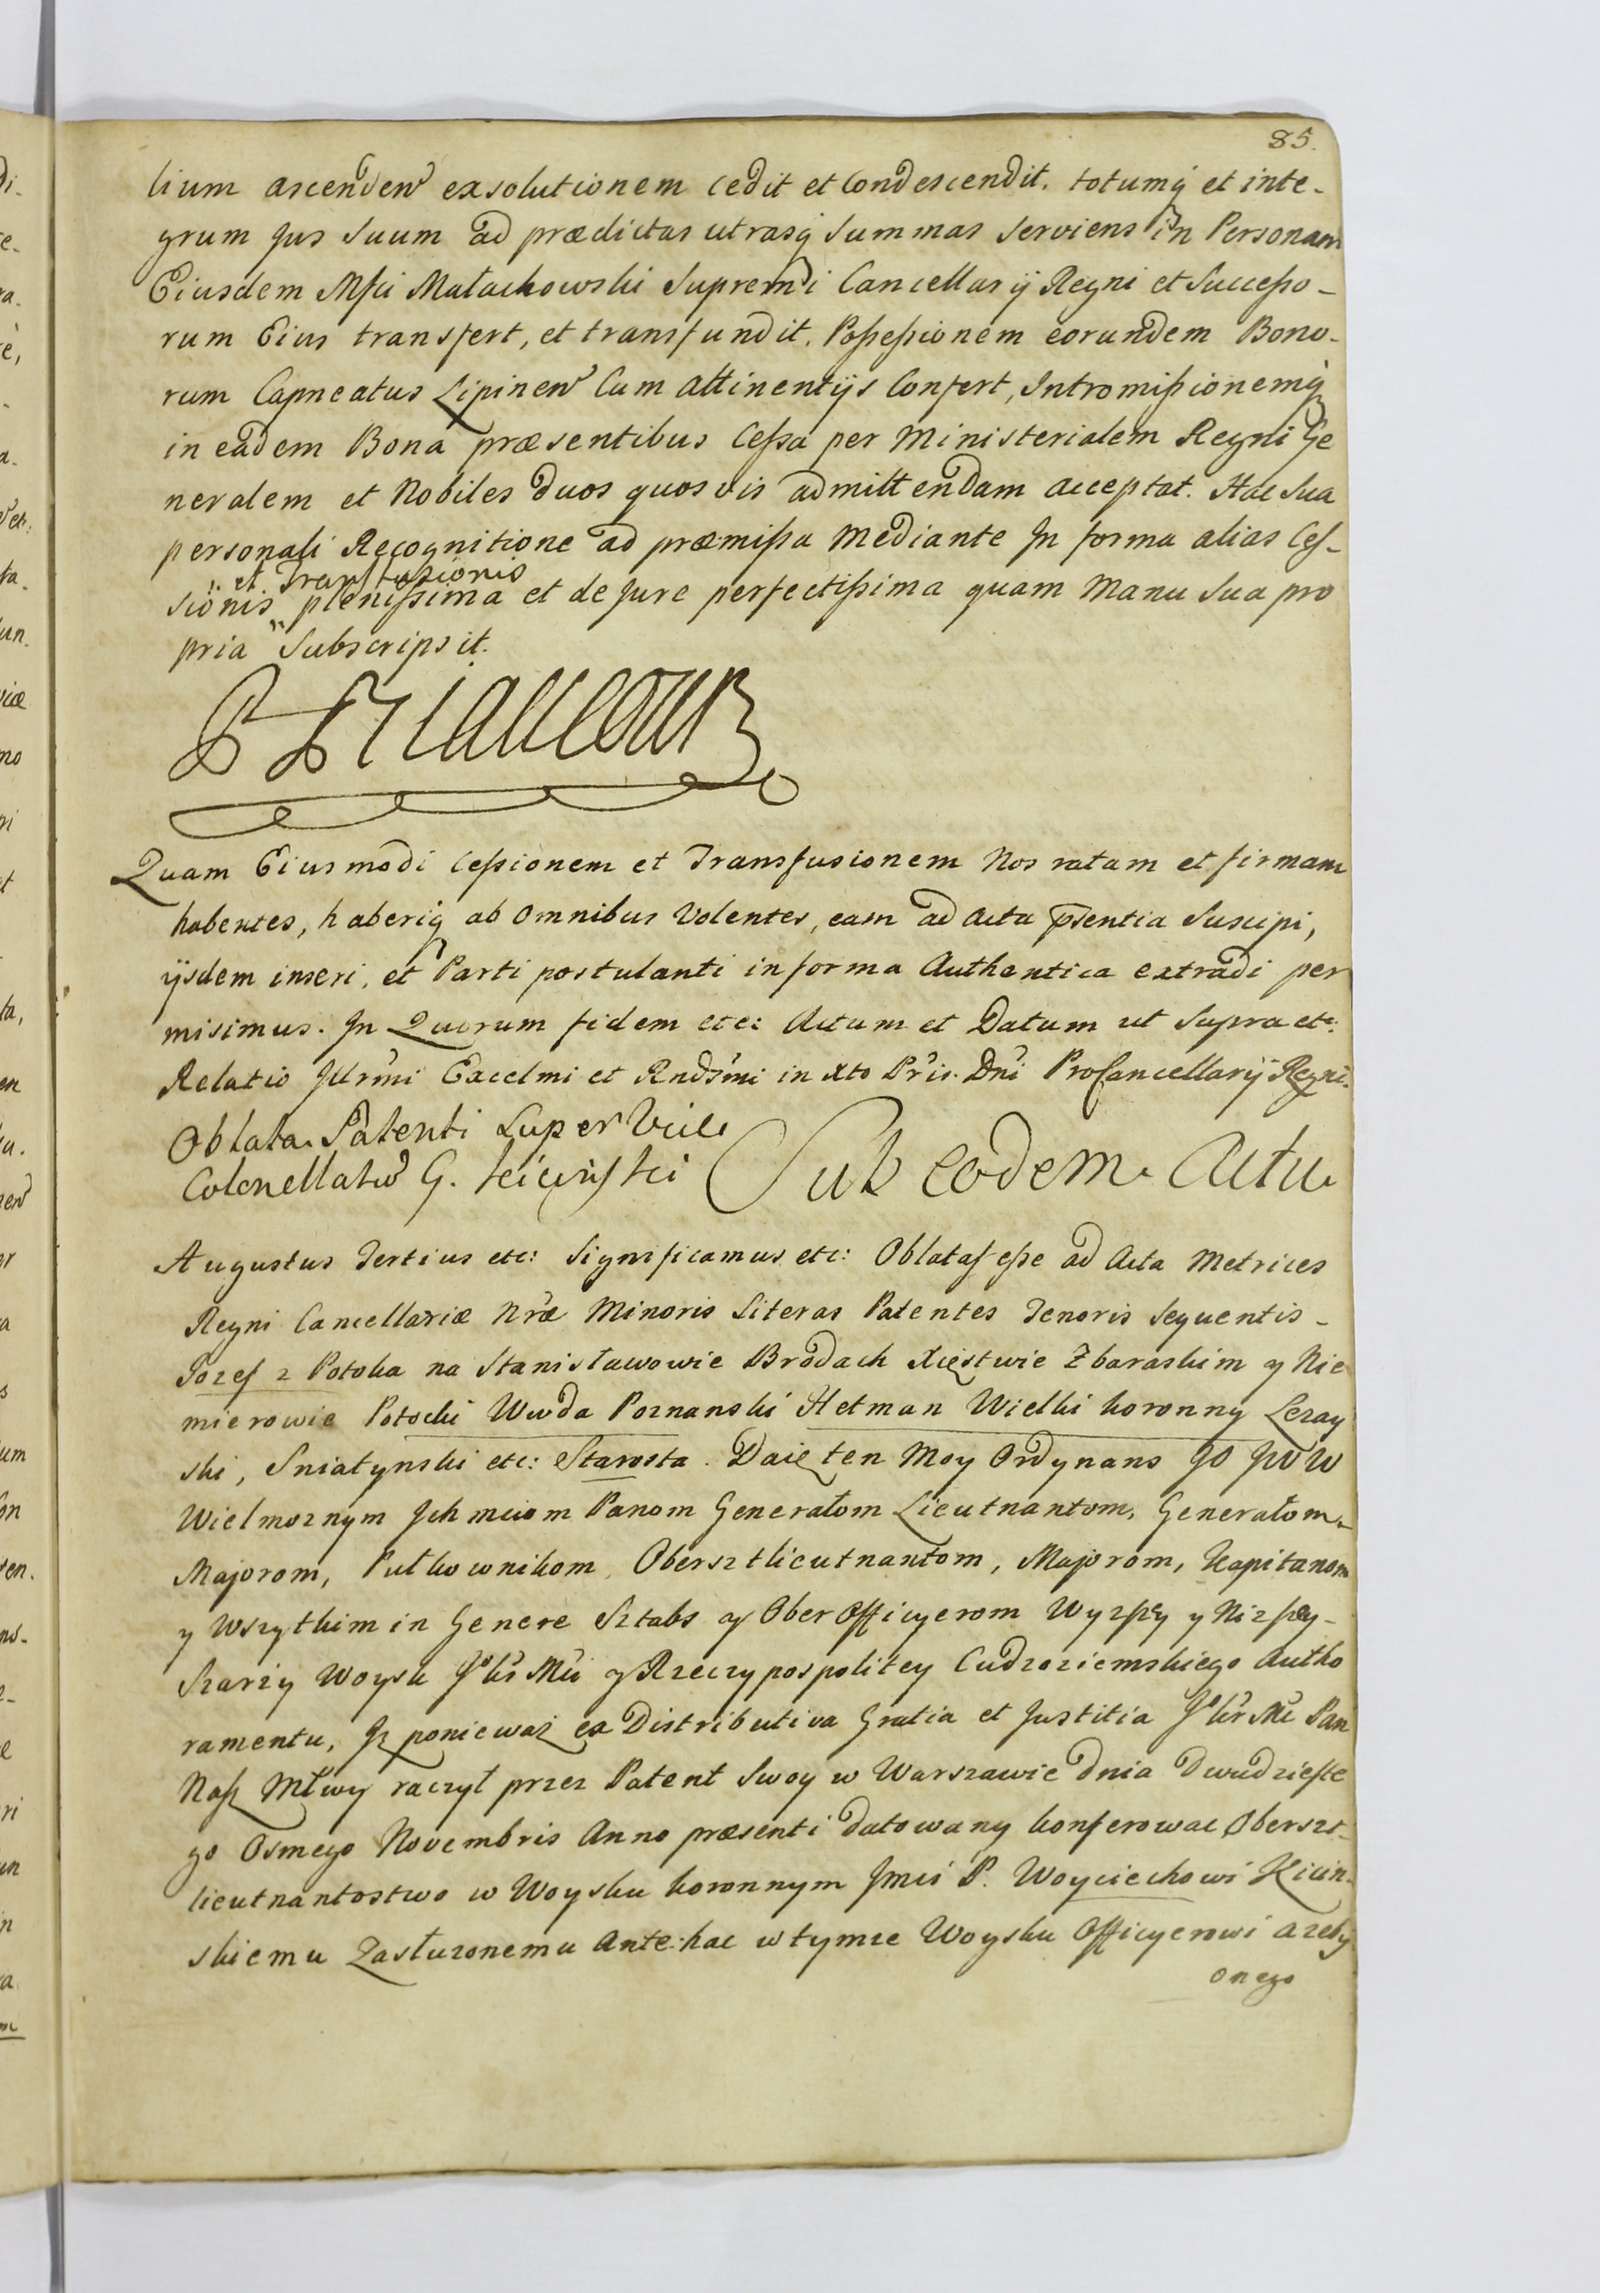 85.
lium ascendeñ exsolutionem cedit et Condescendit. totumq́ et inte-
grum Jus Suum ad prædictas utrasq́ Summas serviens in Personam
Eiusdem Mfci Małachowski Supremi Cancellarij Regni et Successo-
rum Eius transfert, et transfundit. Possessionem eorundem Bono-
rum Capneatus Lipineñ Cum attinentijs Confert, Intromissionemq́
in eadem Bona præsentibus Cessa per Ministerialem Regni Ge
neralem et Nobiles duos quosvis admittendam acceptat. Hac Sua
personali Recognitione ad præmissa Mediante In forma alias Ces-
et Transfusionis
sionis plenissima et de Jure perfectissima quam Manu Sua pro
pria Subscripsit.
Quam Eiusmodi Cessionem et Transfusionem Nos ratam et firmam
habentes, haberiq́ ab omnibus Volentes, eam ad Acta p̄sentia Suscipi,
ijsdem inseri, et Parti postulanti in forma Authentica extradi per
misimus. In Quorum fidem etc: Actum et Datum ut Supra etc:
Relatio Illr̃mi Excelmi et Rnds̃mi in Xto Pr̃is. Dñi ProCancellarij Regni.
Oblata Patenti Super Vice
Colonellatus G. Kicinski Sub eodem Actu
Augustus Tertius etc: Significamus etc: Oblatas esse ad Acta Metrices
Regni Cancellariæ Nr̃æ Minoris Literas Patentes Tenoris Sequentis-
Jozef z Potoka na Stanisławowie Brodach Xięstwie Zbaraskim y Nie
mierowie Potocki Wwda Poznanski Hetman Wielki koronny Lezay
ski, Sniatynski etc: Starosta. Daię ten Moy Ordynans JO JW W
Wielmoznym Jchmciom Panom Generałom Lieutnantom, Generałom-
Majorom, Pułkownikom, Obersztlieutnantom, Majorom, Kapitanom
y Wszytkim in Genere Sztabs y Ober Officyerom Wyzszey y Nizszey-
Szarzy Woysk JoKr̃ Mci y Rzeczypospolitey Cudzoziemskiego Autho
ramentu, Jz poniewaz ex Distributiva Gratia et Justitia JoKr̃ Mć Pan
Nasz Młwy raczył przez Patent Swoy w Warszawie dnia Dwudzieste
go Osmego Novembris Anno præsenti datowany konferowac Oberszt-
lieutnantostwo w Woysku koronnym Jmci P. Woyciechowi Kicin-
skiemu Zasłuzonemu Ante hac w tymze Woysku Officyerowi azeby
onego